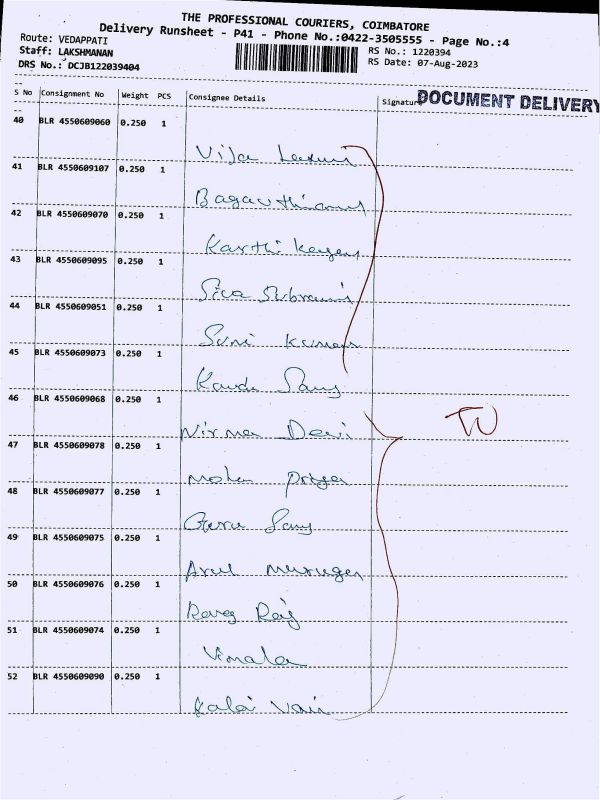 THE PROFESSIONAL COURIERS, COIMBATORE
Delivery Runsheet - P41 - Phone No.:0422-3505555 - Page No.:4
Route: VEDAPPATI RS No.: 1220394
Staff: LAKSHMANAN RS Date: 07-Aug-2023
DRS No.: DCJB122039404
S No Consignment No Weight PCS Consignee Details Signature DOCUMENT DELIVERY
40 BLR 4550609060 0.250 1
Vija Laxmi
41 BLR 4550609107 0.250 1
Bagavthiamml
42 BLR 4550609070 0.250 1
Karthi Keyen
43 BLR 4550609095 0.250 1
Siva Subramni
44 BLR 4550609051 0.250 1
Suni Kumar
45 BLR 4550609073 0.250 1
46 BLR 4550609068 0.250 1
Nirma Devi
47 BLR 4550609078 0.250 1
Mohan Priya
48 BLR 4550609077 0.250 1
Guru Samy
49 BLR 4550609075 0.250 1
Arul Murugen
50 BLR 4550609076 0.250 1
Raj
51 BLR 4550609074 0.250 1
Vimala
52 BLR 4550609090 0.250 1
Kalai Vani